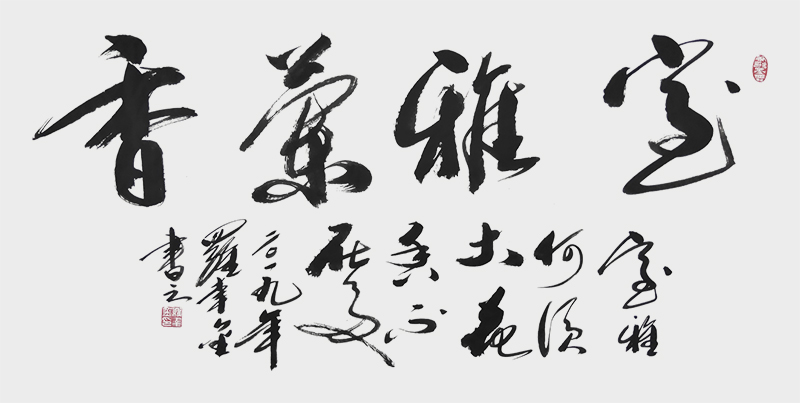 室雅蘭香
室雅
何須
大花
香不
在多
二〇一九年
羅
書之